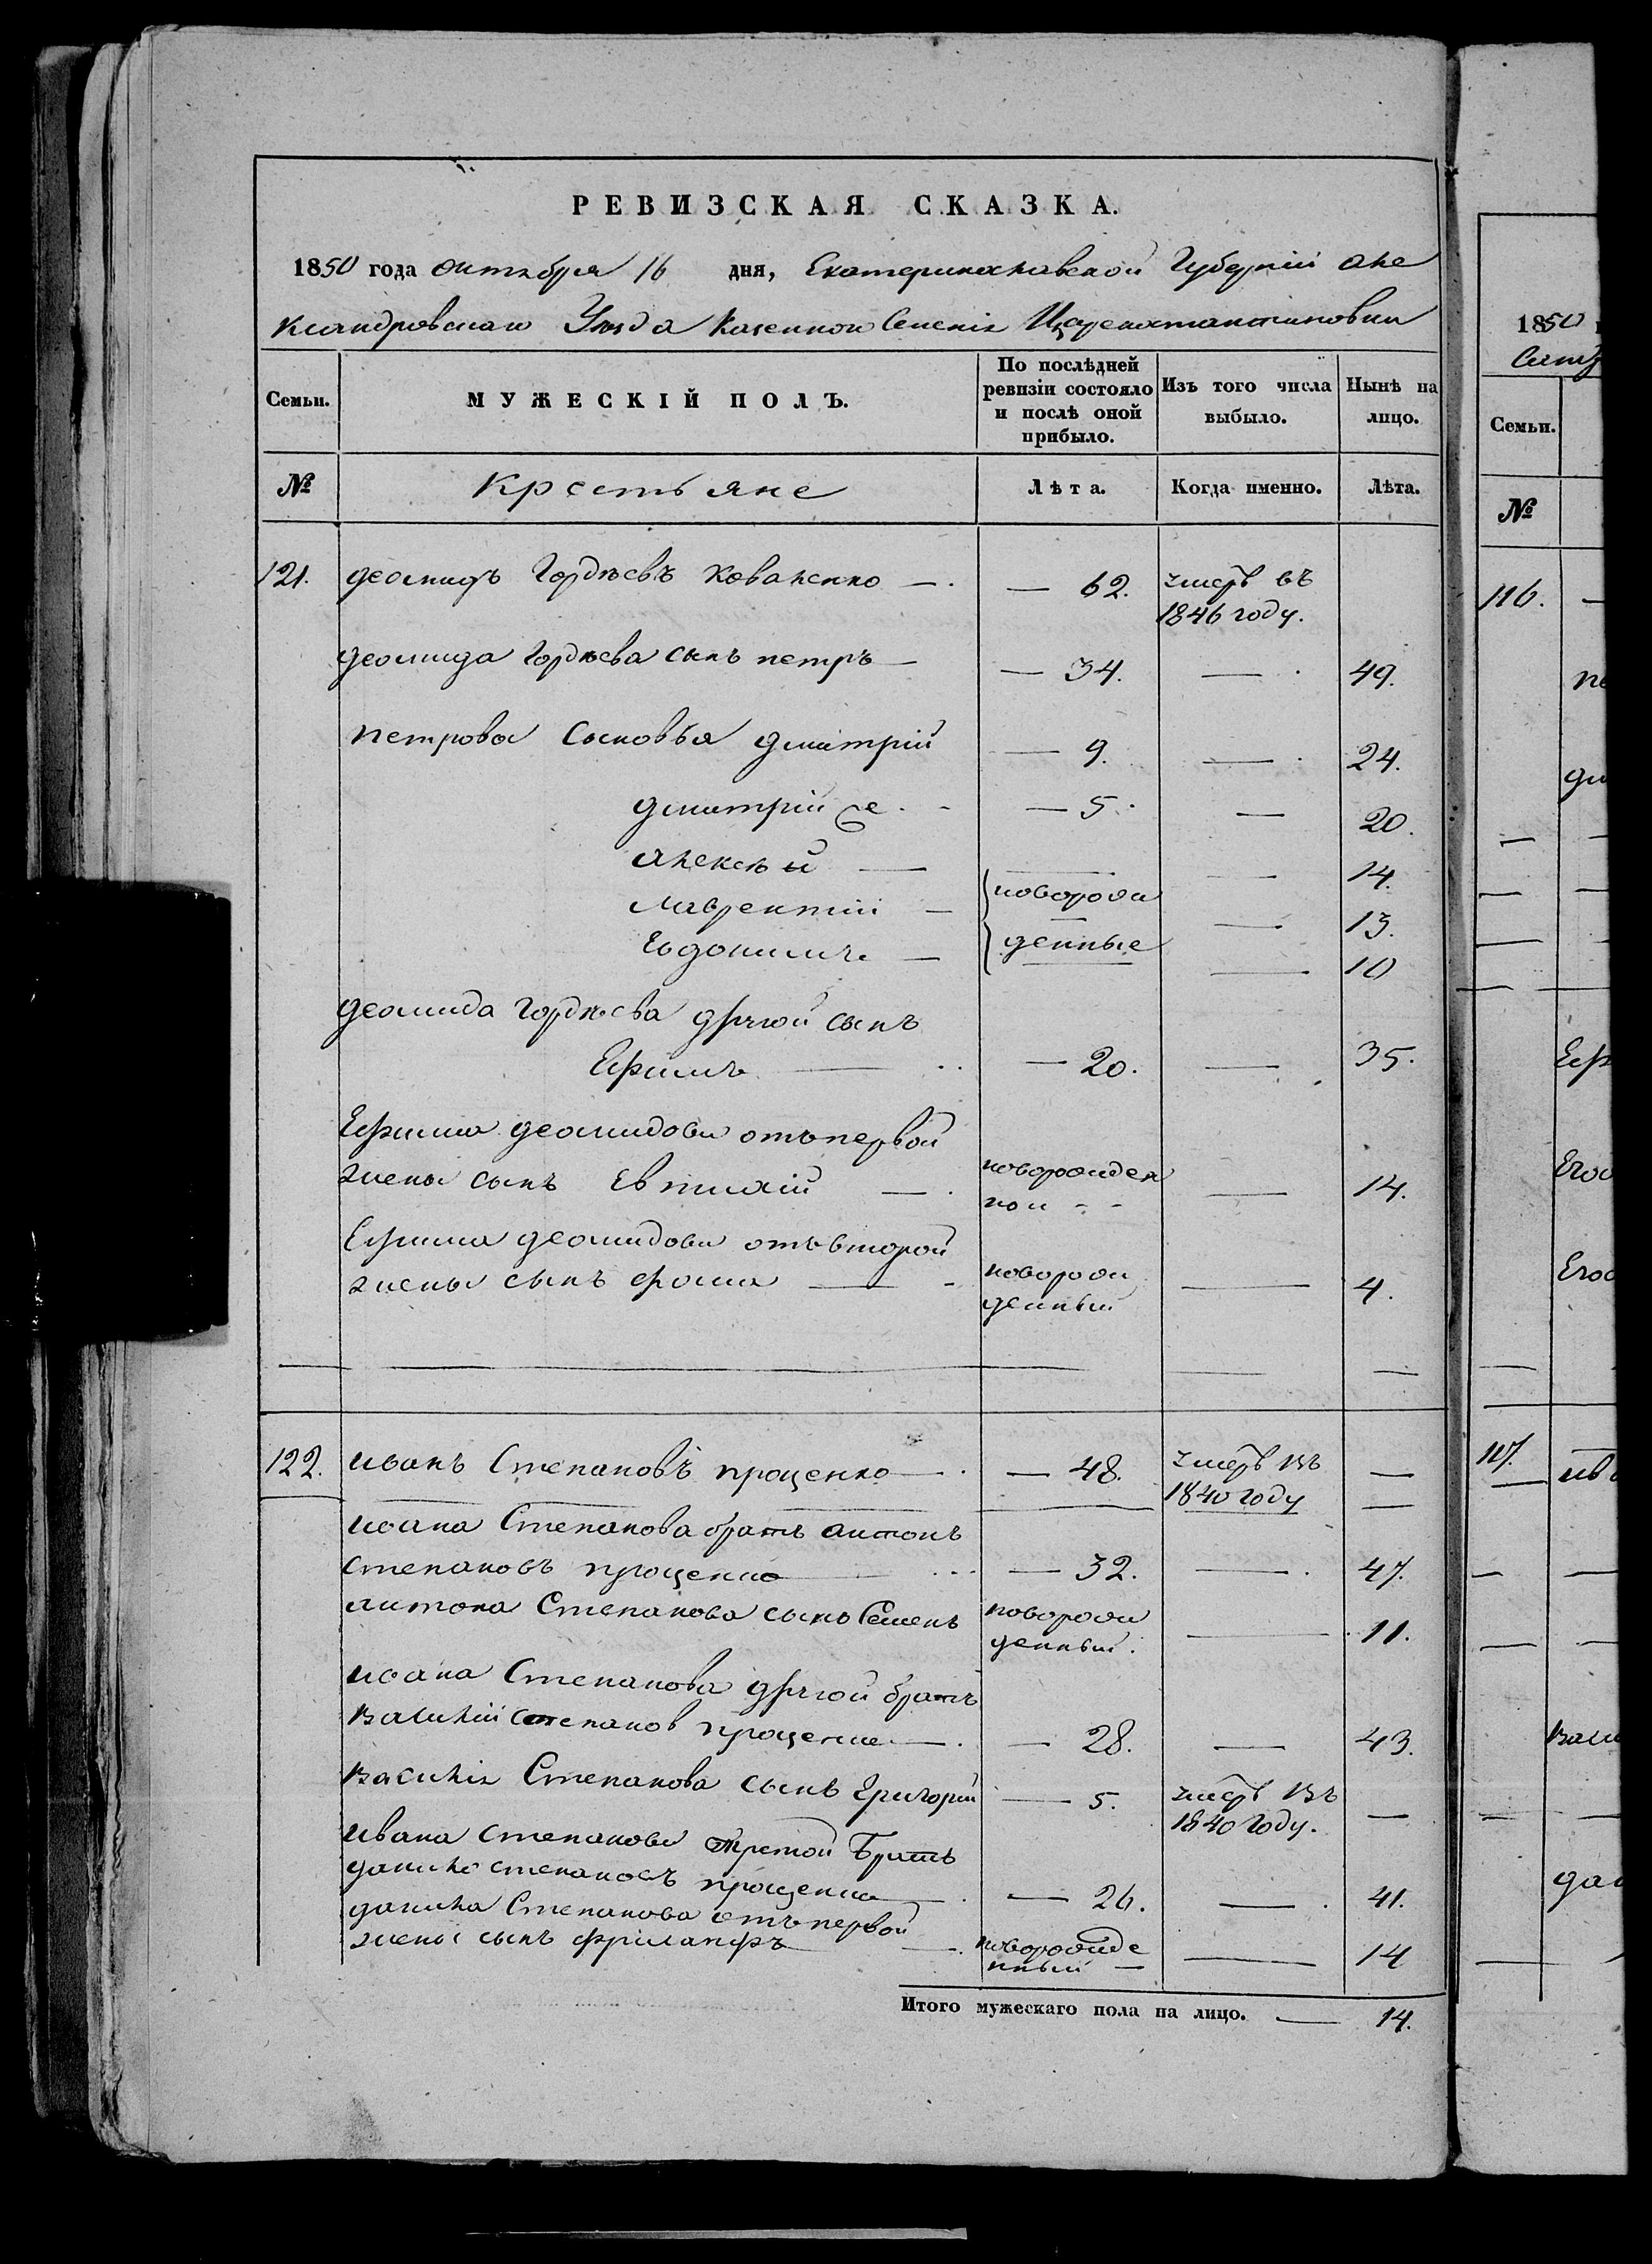 РЕВИЗСКАЯ СКАЗКА.
1850 года октября 16 дня, Екатеринославской Губерніи Але
ксандровскаго Уѣзда Казенной Селенія Цареконстантиновки
Семьи. МУЖЕСКІЙ ПОЛЪ. По послѣдней ревизіи состояло и послѣ оной прибыло. Изъ того числа выбыло. Нынѣ на лицо.
№ Крестьяне Лѣта. Когда именно. Лѣта.
121. Деомидъ Гордѣевъ Коваленко — 62. умеръ въ
1846 году.
Деомида Гордѣева сынъ петръ — 34. — 49.
Петрова Сыновья Дмитрій — 9. — 24.
Дмитрій же — 5. — 20.
Алексѣй — 14.
Лаврентій — новорож — 13.
Евдокимъ — денные — 10
Деомида Гордѣева другой сынъ
Ефимъ — 20. — 35.
Ефима Деомидова отъ первой
жены сынъ Евтихій — новорожден
ной — 14.
Ефима Деомидова отъ второй
жены сынъ фома — новорож
денный — 4.
122. Иванъ Степановъ проценко — 48. умеръ въ —
1840 году —
Ивана Степанова братъ антонъ
Степановъ проценко — 32. — 47.
антона Степанова сынъ Семенъ новорож
денный. — 11.
Ивана Степанова другой братъ
Василій Степанов проценко — 28. — 43.
Василія Степанова сынъ Григорій — 5. умеръ въ
1840 году. —
Ивана Степанова третой Братъ
данило степановъ проценко — 26. — 41.
данила Степанова отъ первой
жены сынъ — новорожде
нный — 14
Итого мужескаго пола на лицо. — 14.
1850
Семьи.
№
116.
Еф
117.